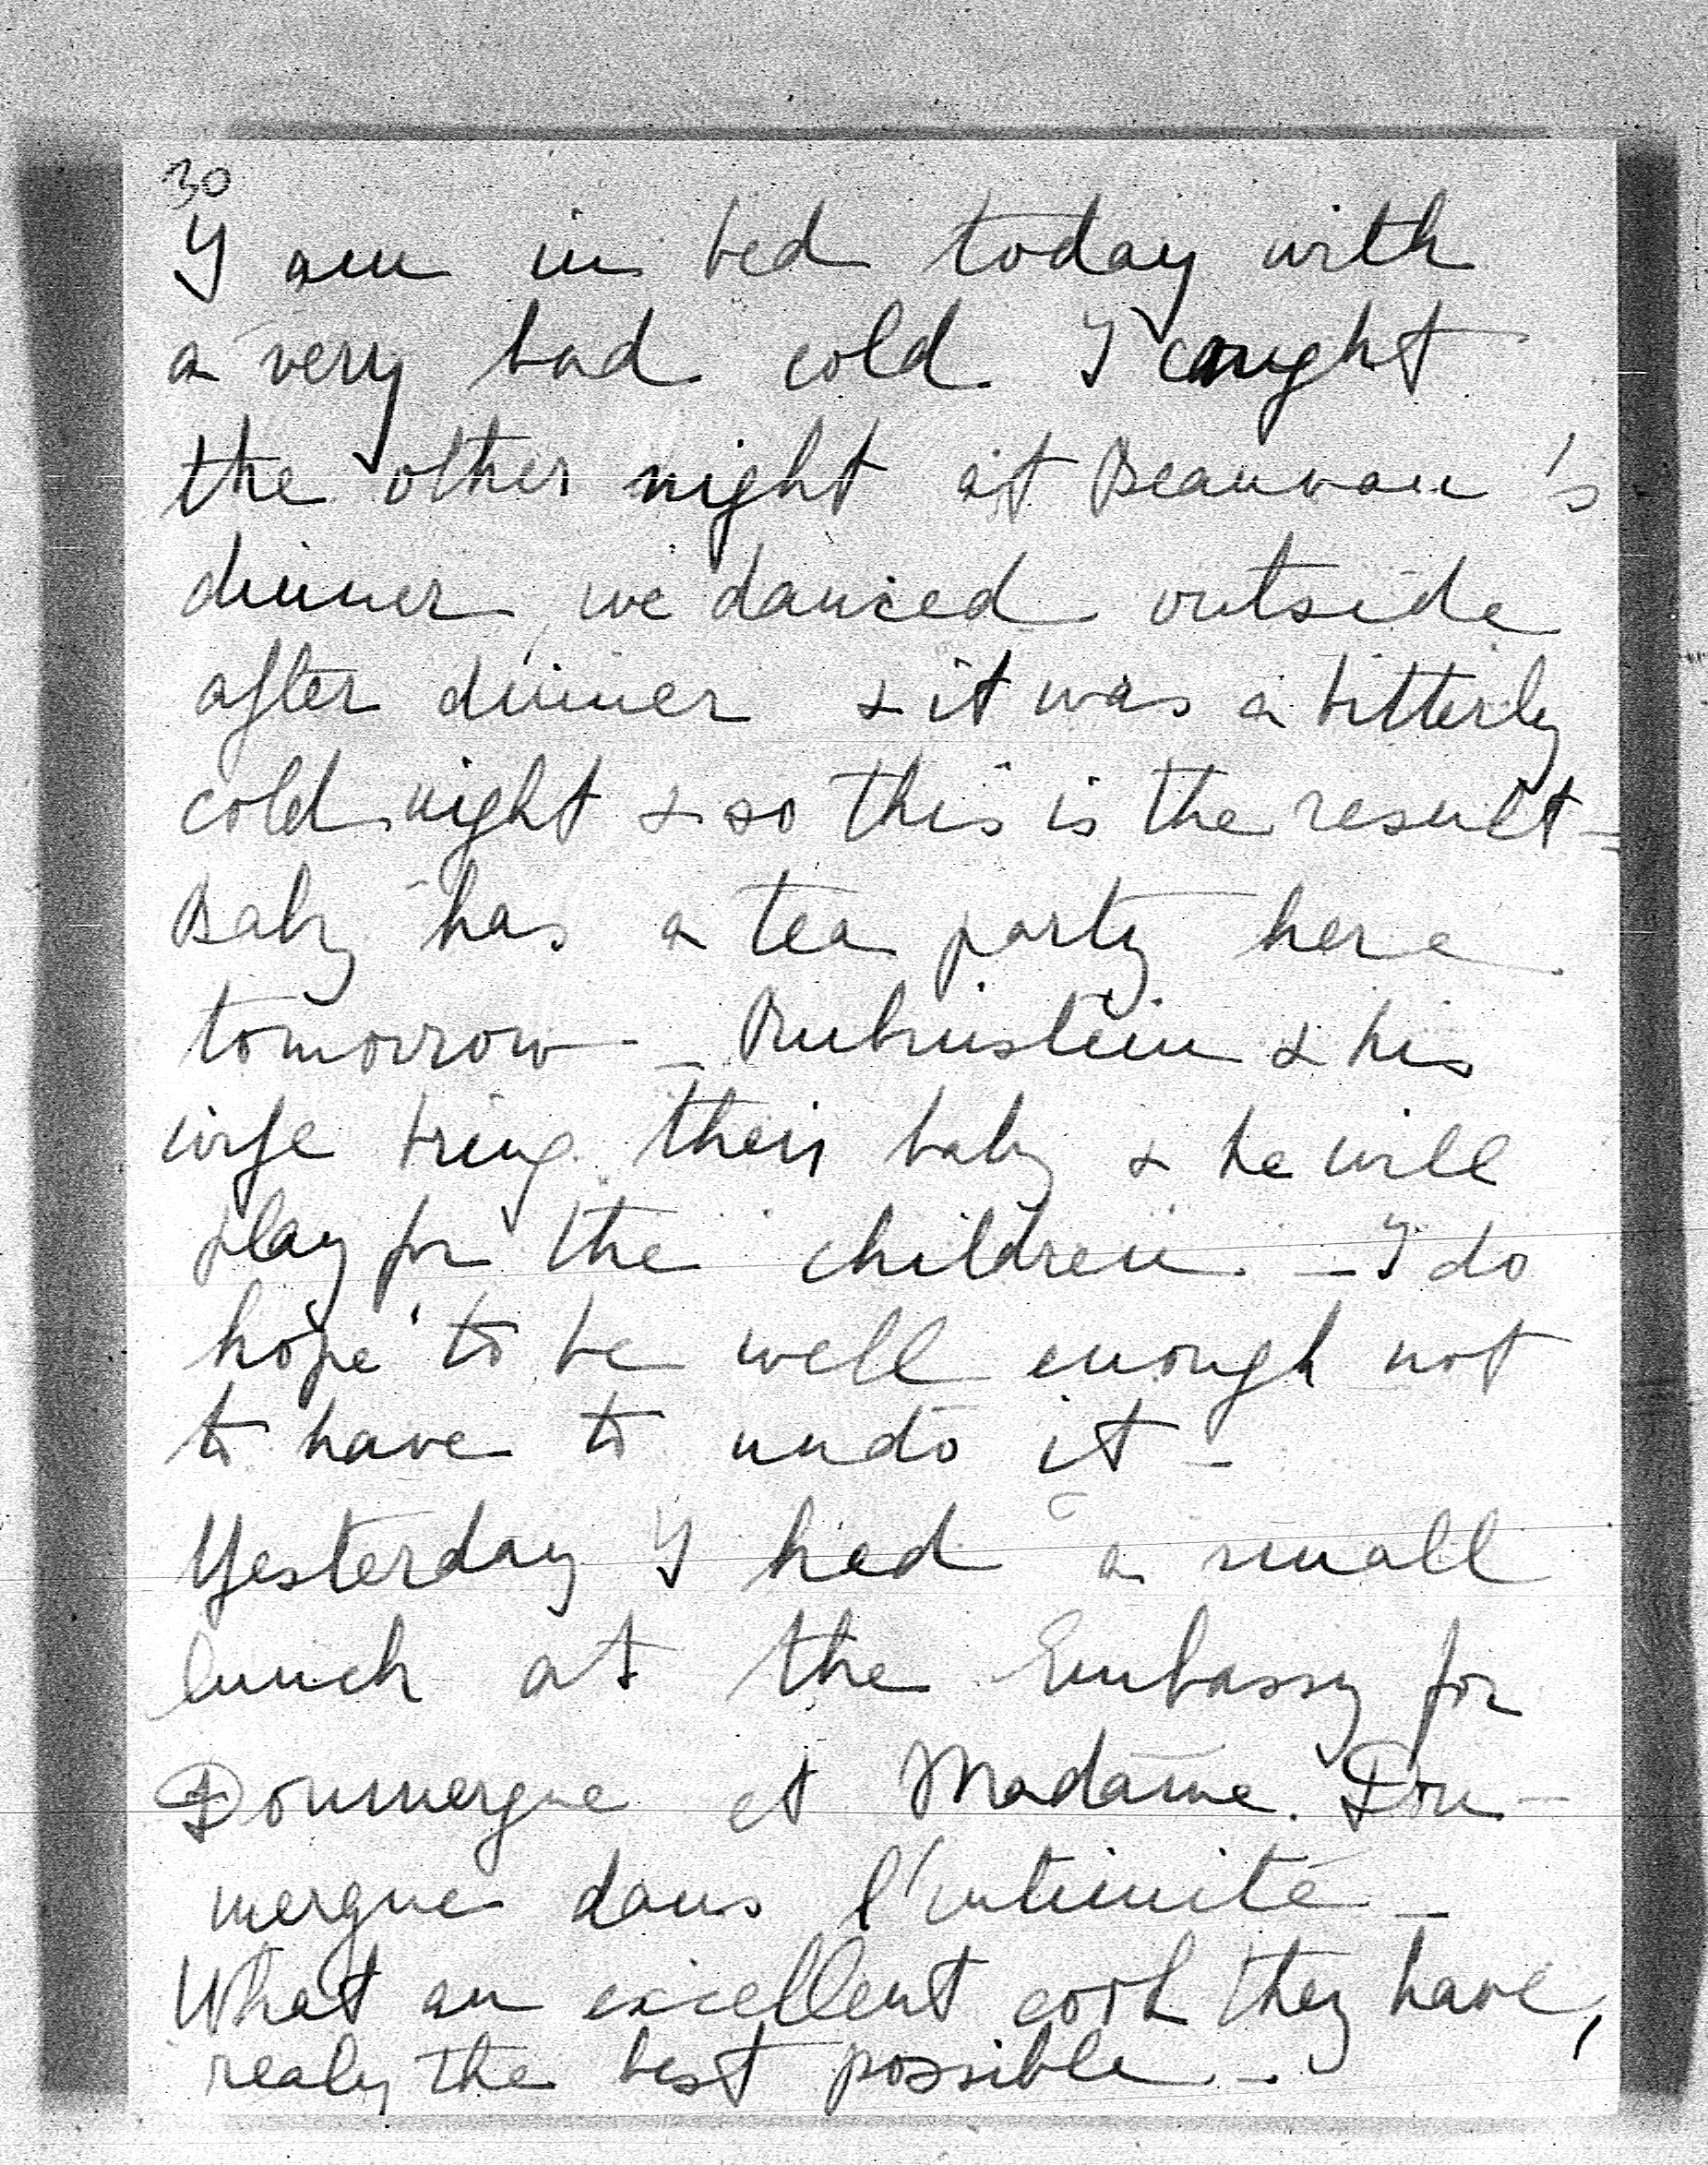 30
I am in bed today with
a very bad cold I caught
the other night at Beauvau's
dinner, we danced outside
after dinner & it was a bitterly
cold night & so this is the result -
Baby has a tea party here
tomorrow - Rubinstein & his
wife bring their baby & he will
play for the children. - I do
hope to be well enough not
to have to undo it -
Yesterday I had a small
lunch at the Embassy for
Doumergue et Madame Dou-
mergue dans l'intimité -
What an excellent cook they have,
realy the best possible -